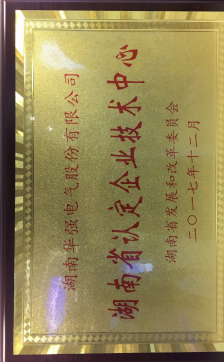 湖南华强电气股份有限公司
湖南省认定企业技术中心
湖南省发展和改革委员会
二〇一七年十二月